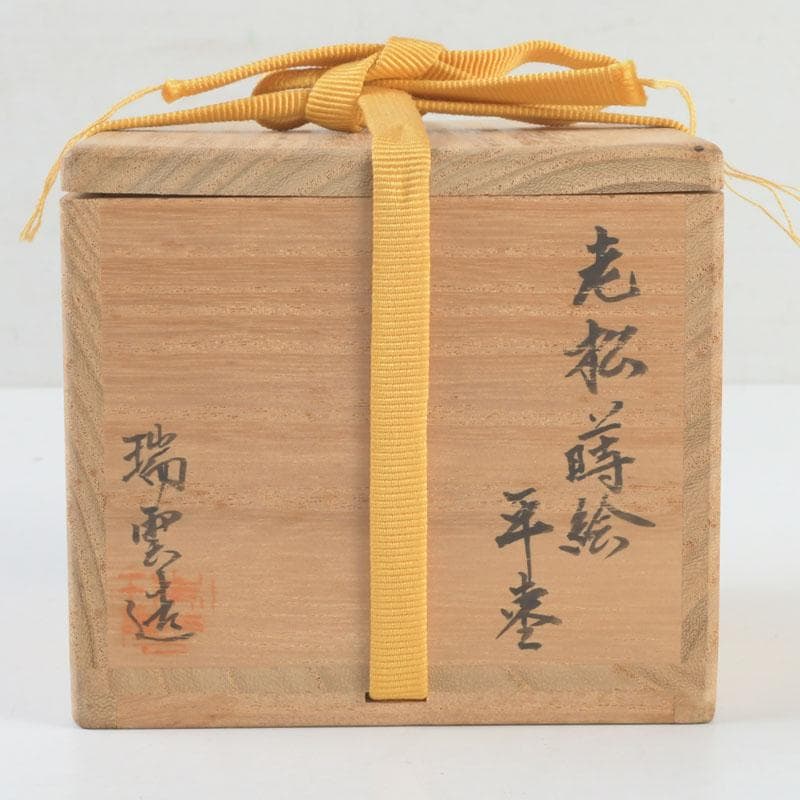 老松蒔絵
平棗
瑞雲造